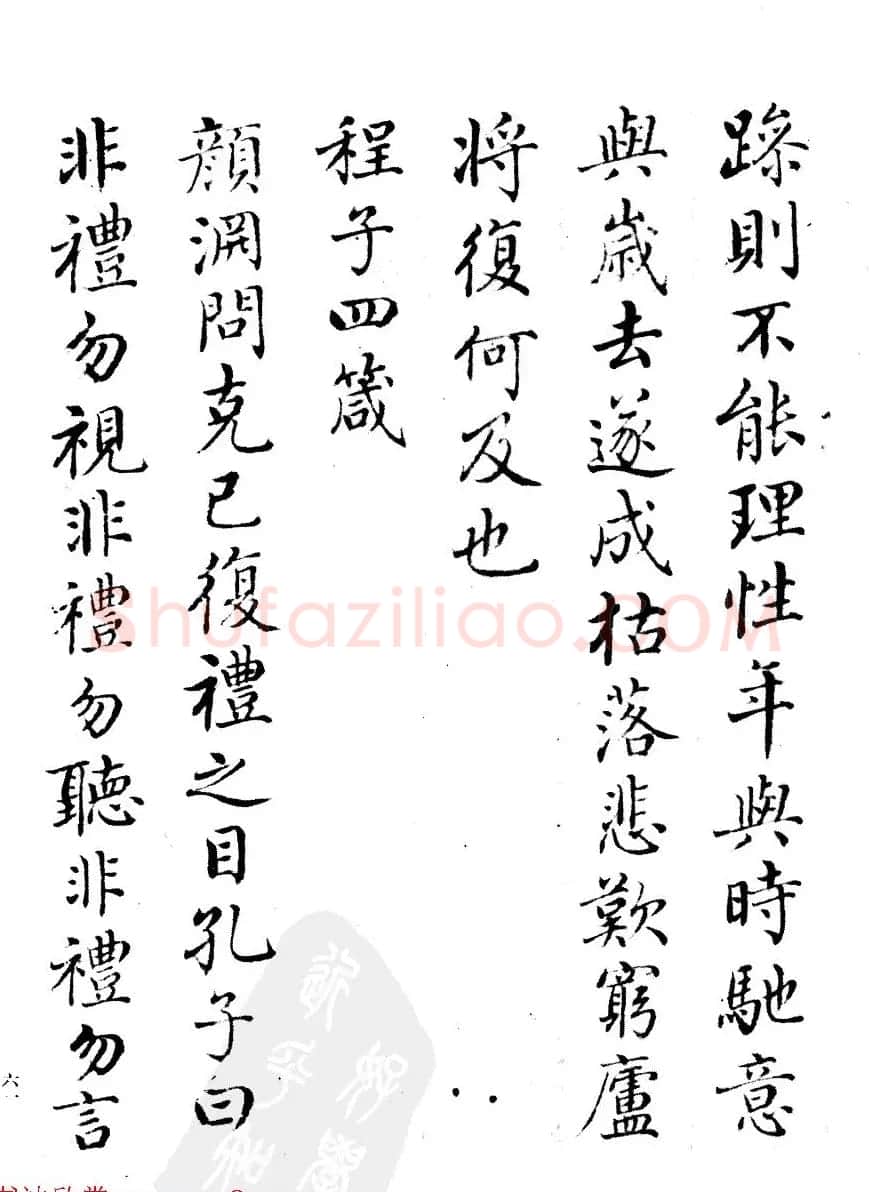 躁則不能理性年與時馳意
與歲去遂成枯落悲歎窮廬
將復何及也
程子四箴
顏淵問克己復禮之目孔子曰
非禮勿視非禮勿聽非禮勿言
六一
shufaziliao.COM